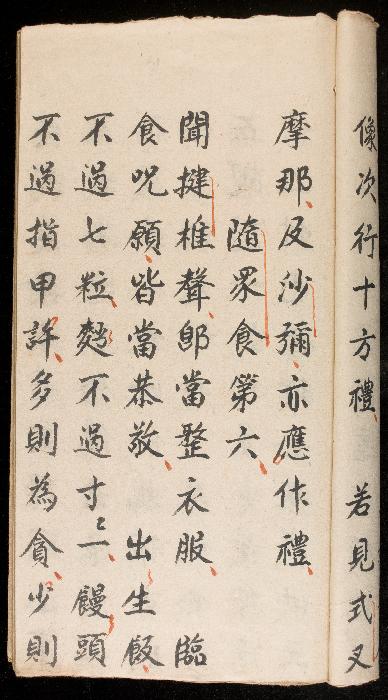 像次行十方禮 若見式叉
摩那及沙彌亦應作禮
隨眾食第六
聞揵椎聲即當整衣服 臨
食呪願皆當恭敬 出生飯
不過七粒麪不過寸一饅頭
不過指甲許多則為貪少則